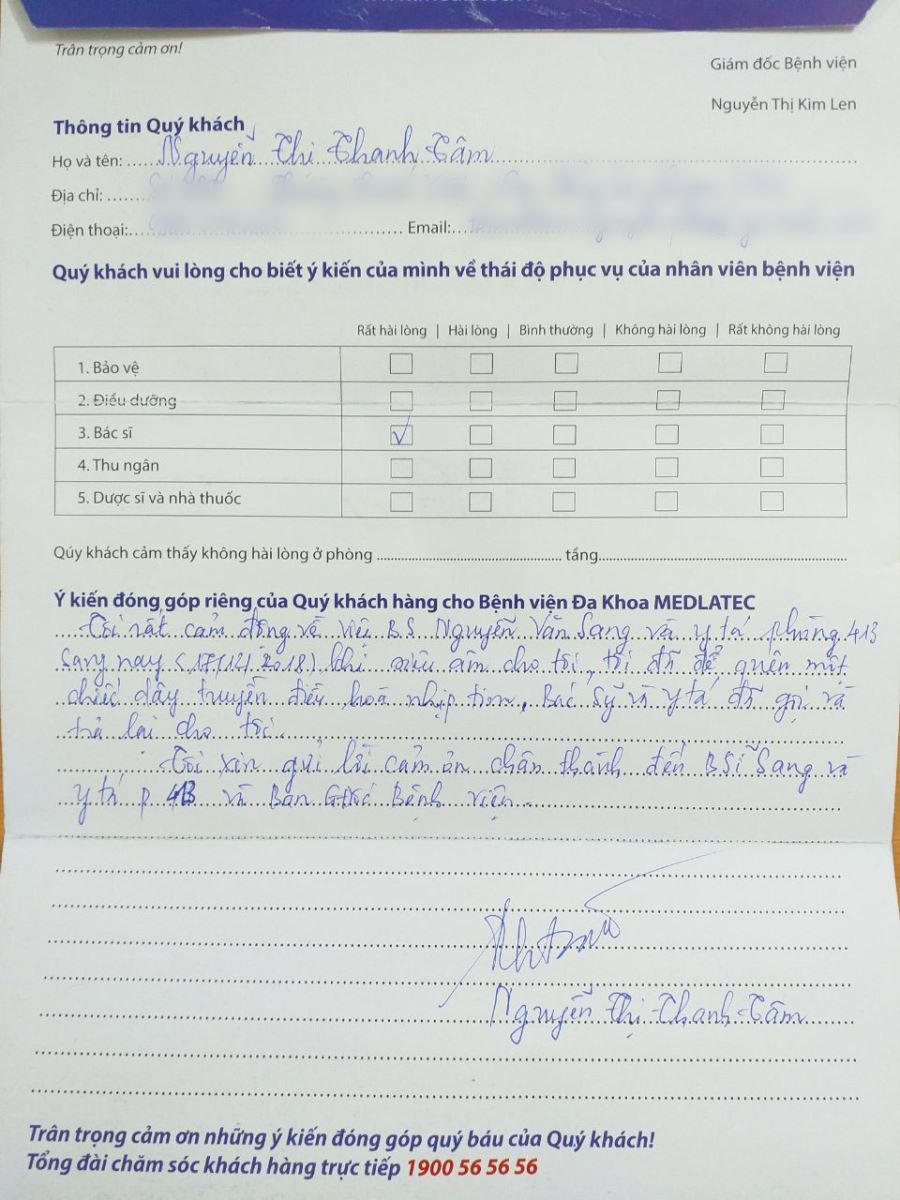 Trân trọng cảm ơn!
Giám đốc Bệnh viện
Nguyễn Thị Kim Len
Thông tin Quý khách
Họ và tên: Nguyễn Thị Thanh Tâm
Địa chỉ:
Điện thoại: Email:
Quý khách vui lòng cho biết ý kiến của mình về thái độ phục vụ của nhân viên bệnh viện
Rất hài lòng | Hài lòng | Bình thường | Không hài lòng | Rất không hài lòng
1. Bảo vệ
2. Điều dưỡng
3. Bác sĩ
4. Thu ngân
5. Dược sĩ và nhà thuốc
Qúy khách cảm thấy không hài lòng ở phòng tầng
Ý kiến đóng góp riêng của Quý khách hàng cho Bệnh viện Đa Khoa MEDLATEC
Tôi rất cảm động về việc B.S Nguyễn Văn Sang và y tá phòng 413
sáng nay (17/12/2018) khi siêu âm cho tôi, tôi đã để quên một
chiếc dây truyền điều hoà nhịp tim, Bác sỹ và y tá đã gọi và
trả lại cho tôi.
Tôi xin gửi lời cảm ơn chân thành đến BSĩ Sang và
y tá p 413 và Ban GĐốc Bệnh viện.
Nguyễn Thị Thanh Tâm
Trân trọng cảm ơn những ý kiến đóng góp quý báu của Quý khách!
Tổng đài chăm sóc khách hàng trực tiếp 1900 56 56 56